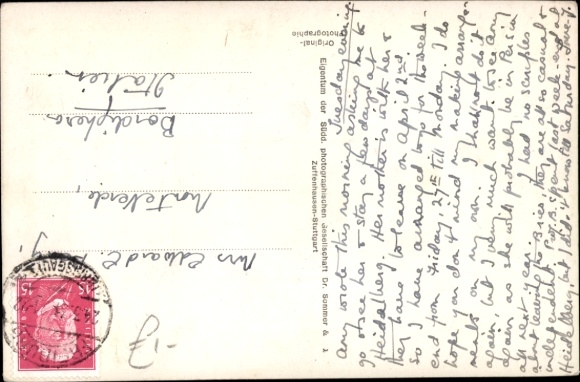 Tuesday evening
Amy wrote this morning asking me to
go & see her & stay a few days at
Heidelberg. Her mother is with her &
they have to leave on April 2nd.
So I have arranged to go for the week-
end from Friday, 27th till Monday. I do
hope you don't mind my making arrange-
ments on my own. I think not do it
again, but I very much want to see Amy
again as she will probably be in Persia
all next year. I had no scruples
about leaving the B's as they are also casual &
independent. P. & B. spent last week-end at
Heidelberg, but I did not know till Saturday. Love J.
Original-
Photographie
Eigentum der Südd. photographischen Gesellschaft Gr. Sommer &
Zuffenhausen-Stuttgart
Mrs Edward C.
Monteverde,
Bordighera
Italien
15
-J